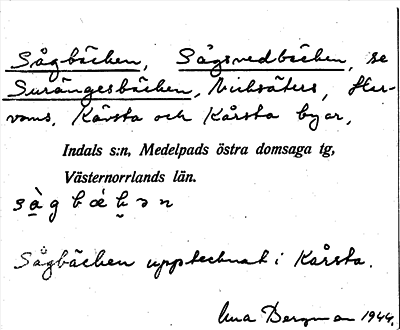 Sågbäcken, Sågsvedbäcken, se
Surängesbäcken, Vicksäters, Har-
voms, Kävsta och Kårsta byar,
Indals s:n, Medelpads östra domsaga tg,
Västernorrlands län.
Sågbäcken upptecknat i Kårsta.
Bergman 1944.